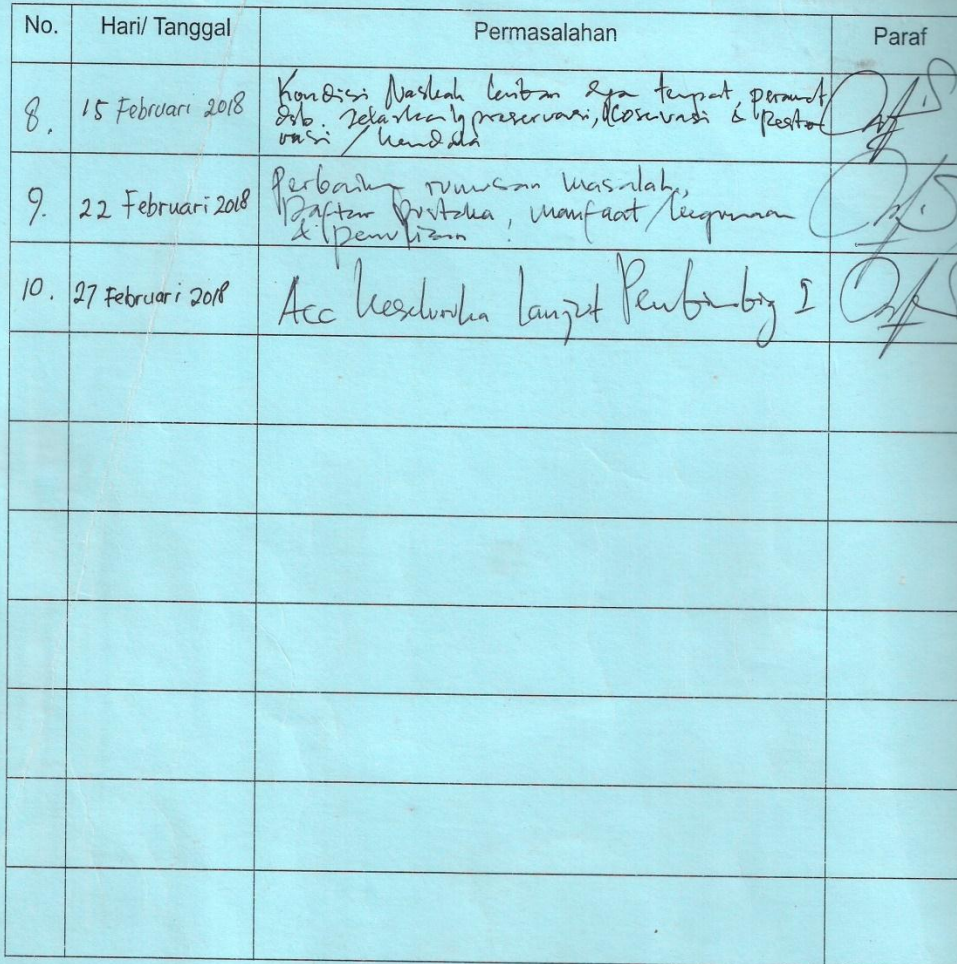 No. Hari/ Tanggal Permasalahan Paraf
8. 15 Februari 2018 Kondisi Naskah tempat,
dsb. Jelaskan preservasi, & Resto
rasi / kendala
9. 22 Februari 2018 rumusan masalah,
Daftar Pustaka, manfaat / kegunaan
& penulisan
10. 27 Februari 2018 Acc Lanjut Pembimbing I